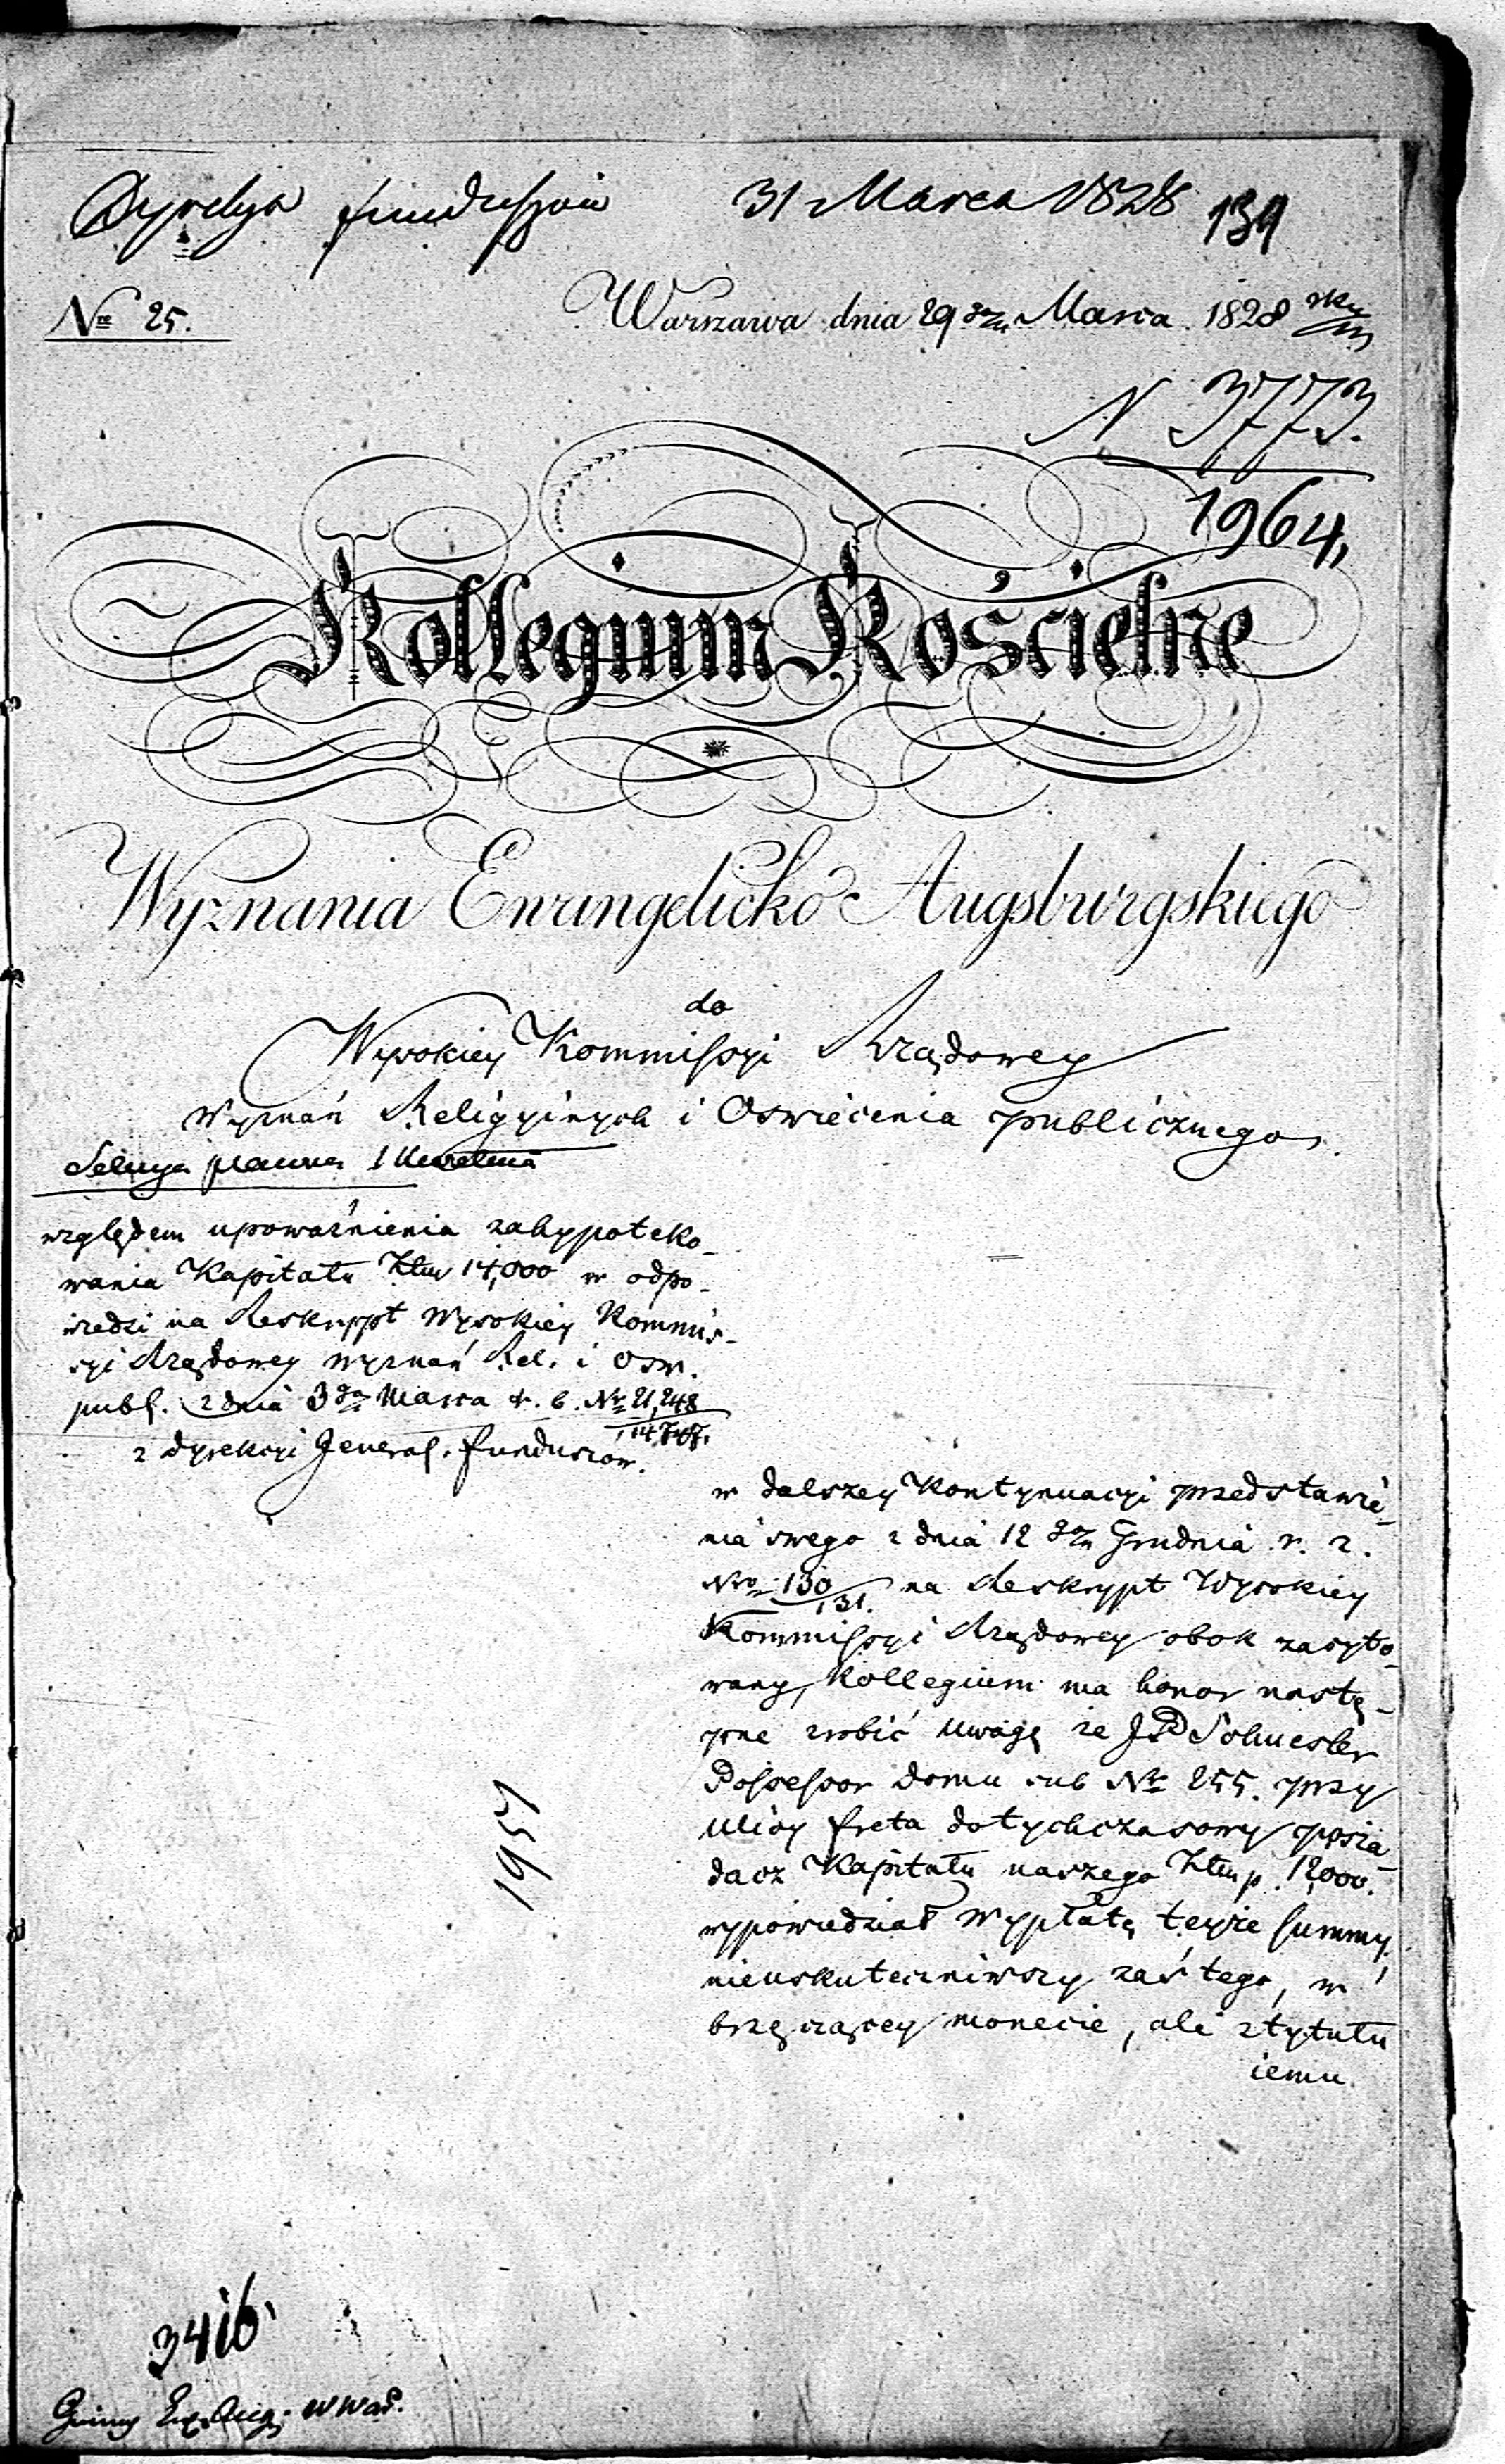 Dyrekcya funduszów 31 Marca 1828 139
Nro 25. Warszawa dnia 29 Marca 1828
N 3773.
1964,
Kollegium Kościelne
Wyznania Ewangelicko Augsburgskiego
do
Wysokiey Kommissyi Rządowey
Wyznań Religyinych i Oswiecenia publicznego.
Sekcya prawna
względem upoważnienia zahypoteko-
wania Kapitału Złtw 14,000 w odpo-
wiedzi na Reskrypt Wysokiey Kommis-
syi Rządowey Wyznań Rel. i Osw.
publ. z dnia 3go Marca r. b. Nr 21,248
14,747.
z dyrekcyi General. funduszow.
w dalszey Kontynuacyi przedstawie-
nia swego z dnia 12 Grudnia r. z.
Nro 130
131. na Reskrypt Wysokiey
Kommissyi Rządowey obok zacyto-
wany, Kollegium ma honor nastę-
pne zrobić uwagę że JP Schuester
Possessor domu sub Nr 255. przy
ulicy freta dotychczasowy posia-
dacz Kapitału naszego Złtw p. 12,000.
wypowiedział Wypłatę teyże summy,
nieuskuteczniwszy zaś tego, w
brzęczącey monecie, ale z tytułu
iemu
1951
3416
Gminy Ew. Aug. w War.